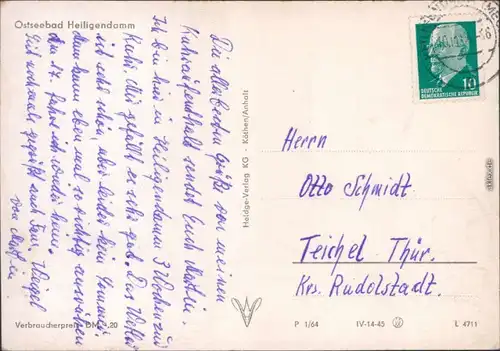 Ostseebad Heiligendamm
Die allerbesten Grüße von meinem
Kuraufenthalt sendet Euch Martin.
Ich bin hier in Heiligendamm 3 Wochen zur
Kur. Hier gefällt es sehr gut. Das Wetter
ist sehr schön, aber leider kein Sommer,
dann kann man so richtig
den 17. fahre ich wieder heim.
Seid nochmals gegrüßt auch Fam.
von Martin
Verbraucherpreis DM -,20
Heldge-Verlag KG · Köthen/Anhalt
DEUTSCHE
DEMOKRATISCHE REPUBLIK
10
Herrn
Otto Schmidt
Teichel Thür.
Krs. Rudolstadt
P 1/64
IV-14-45
L 4711